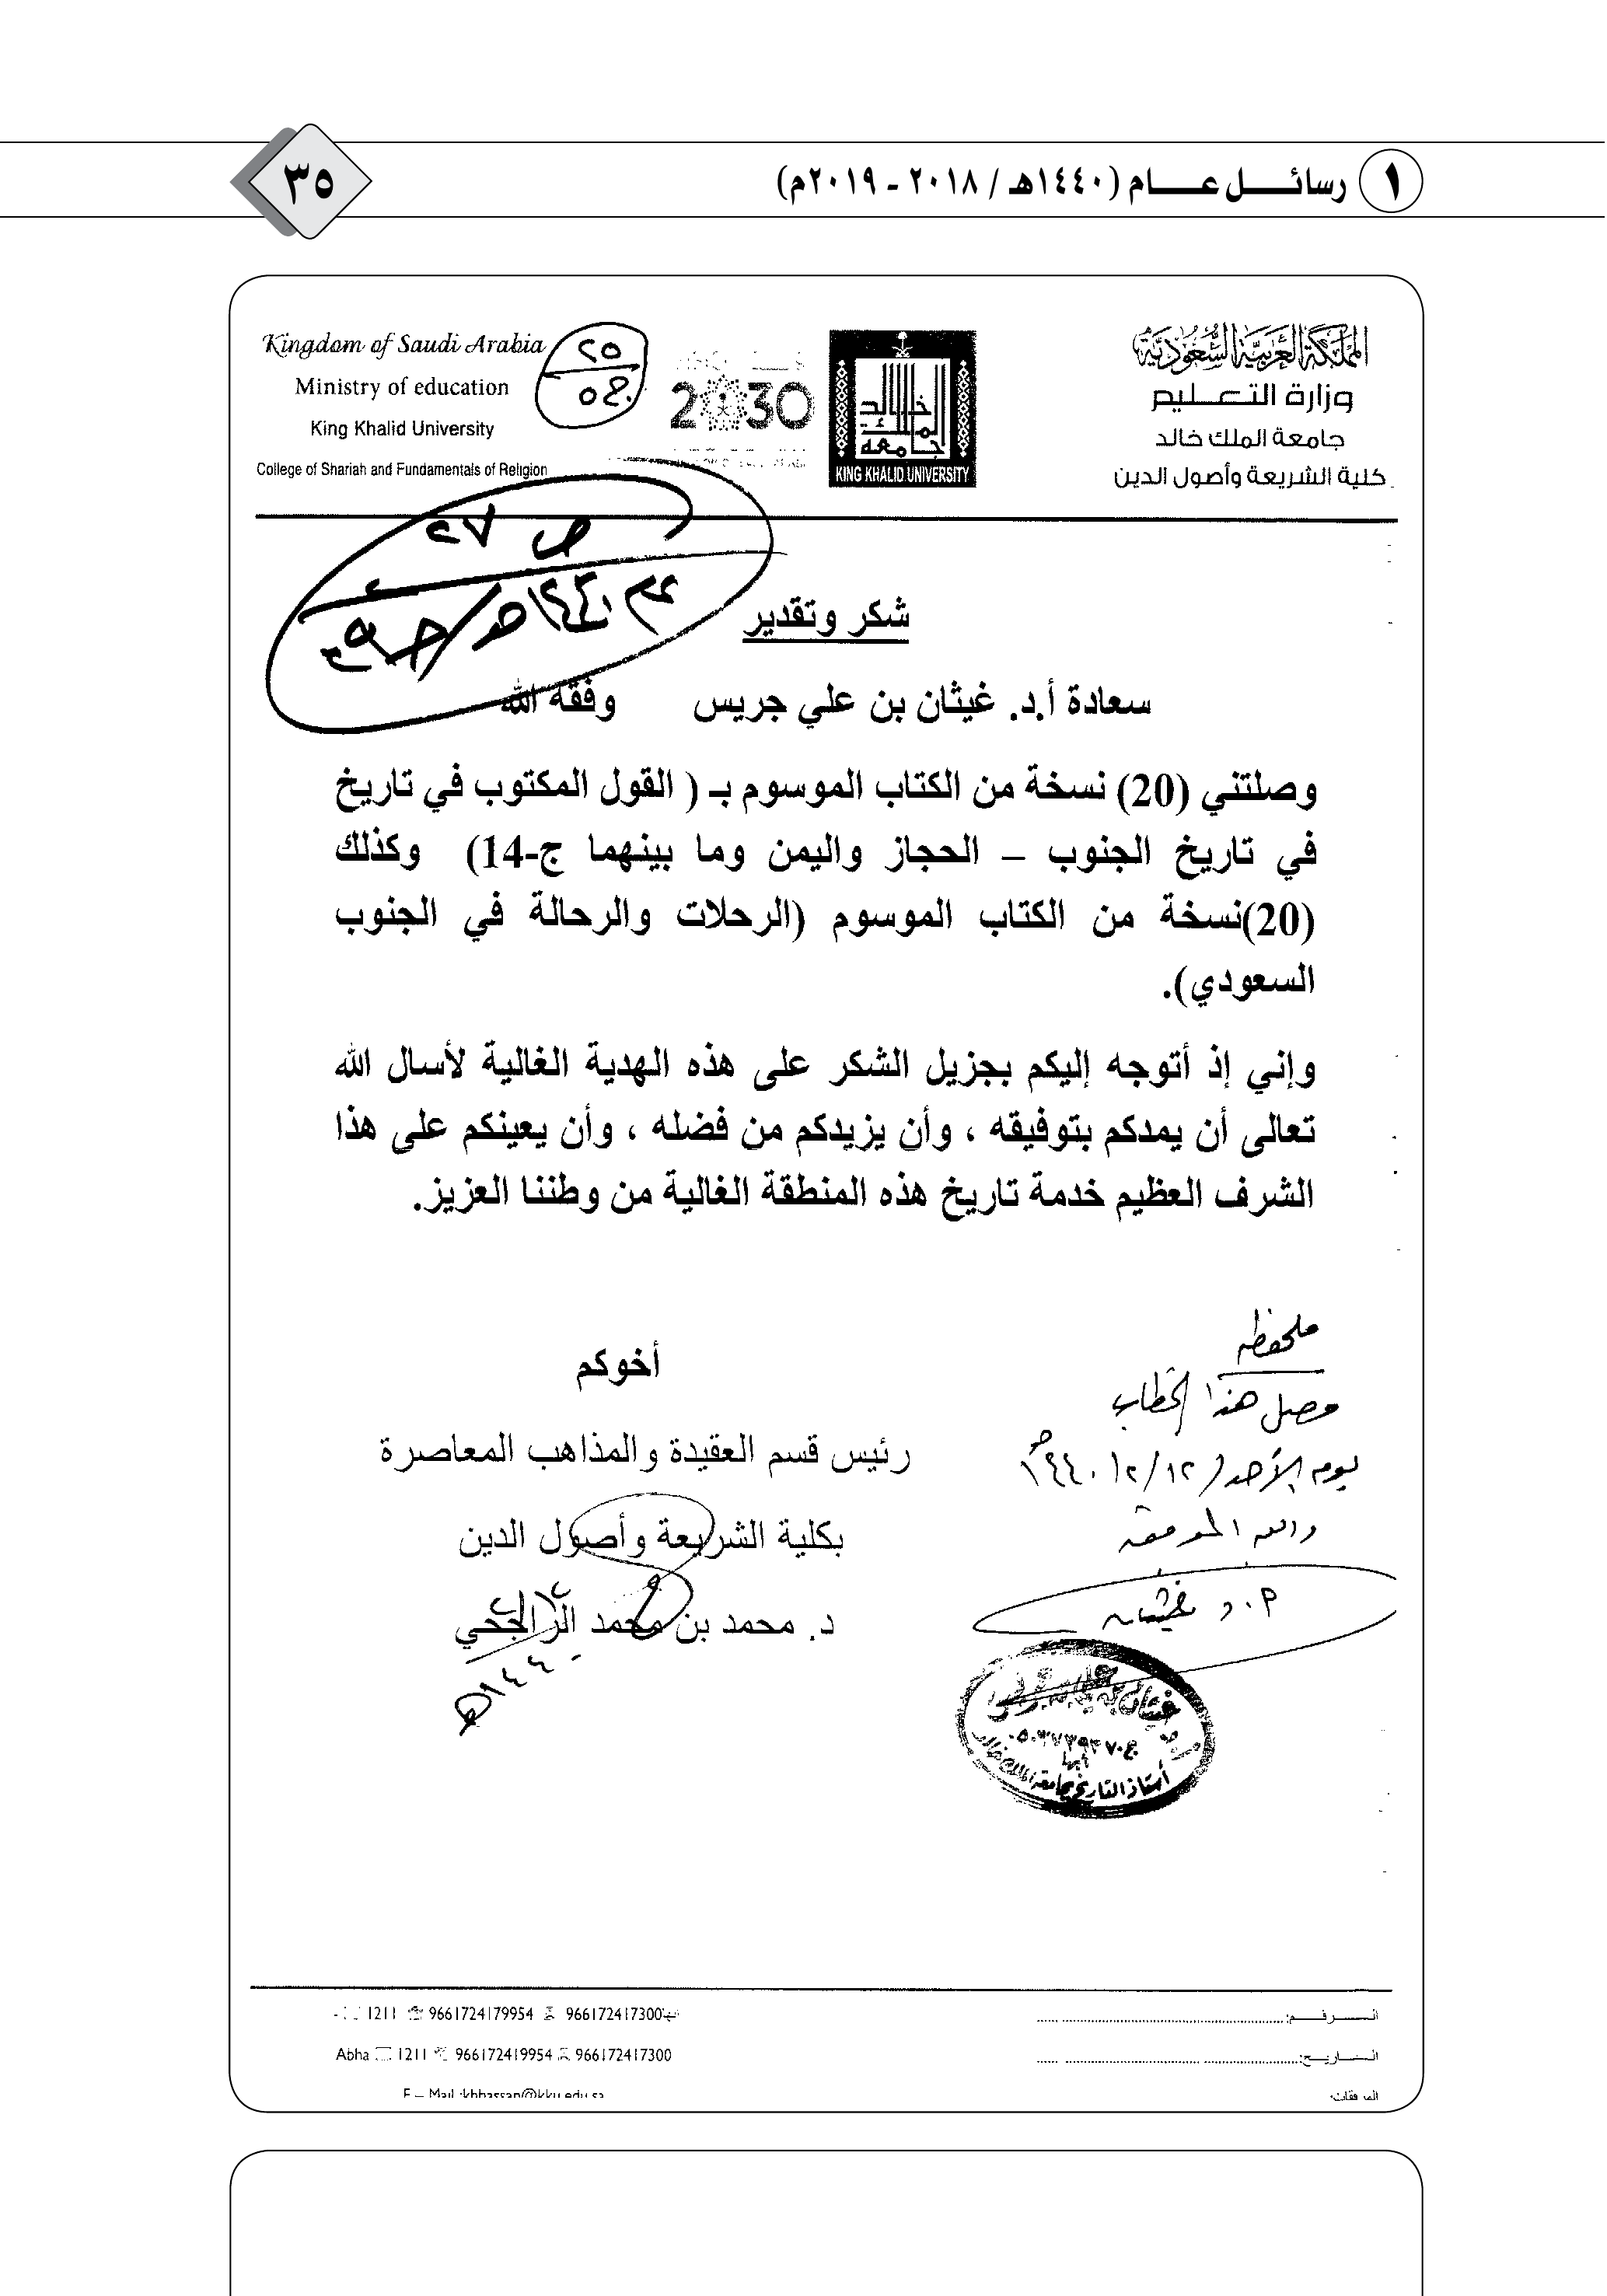 ١ رسائـــل عـــــام (١٤٤٠هـ / ٢٠١٨ - ٢٠١٩م)
٣٥
المملكة العربية السعودية
وزارة التعليم
جامعة الملك خالد
كلية الشريعة وأصول الدين
KING KHALID UNIVERSITY
2030
Kingdom of Saudi Arabia
Ministry of education
King Khalid University
College of Shariah and Fundamentals of Religion
٢٥
ص ٢٧
شكر وتقدير
سعادة أ.د. غيثان بن علي جريس وفقه الله
وصلتني (20) نسخة من الكتاب الموسوم بـ ( القول المكتوب في تاريخ
في تاريخ الجنوب – الحجاز واليمن وما بينهما ج-14) وكذلك
(20)نسخة من الكتاب الموسوم (الرحلات والرحالة في الجنوب
السعودي).
وإني إذ أتوجه إليكم بجزيل الشكر على هذه الهدية الغالية لأسال الله
تعالى أن يمدكم بتوفيقه ، وأن يزيدكم من فضله ، وأن يعينكم على هذا
الشرف العظيم خدمة تاريخ هذه المنطقة الغالية من وطننا العزيز.
أخوكم
رئيس قسم العقيدة والمذاهب المعاصرة
بكلية الشريعة وأصول الدين
د. محمد بن محمد
١٤٤٠هـ
ملحوظة
وصل هذا الخطاب
يوم الأحد ١٢/١٢/١٤٤٠هـ
والله الموفق
أ. د غيثان
أبها
أستاذ التاريخ بجامعة الملك خالد
الـــرقـــم:
الـتـاريـخ:
المرفقات:
1211 9661724179954 966172417300
Abha 1211 966172419954 966172417300
E – Mail :khhassan@kku.edu.sa